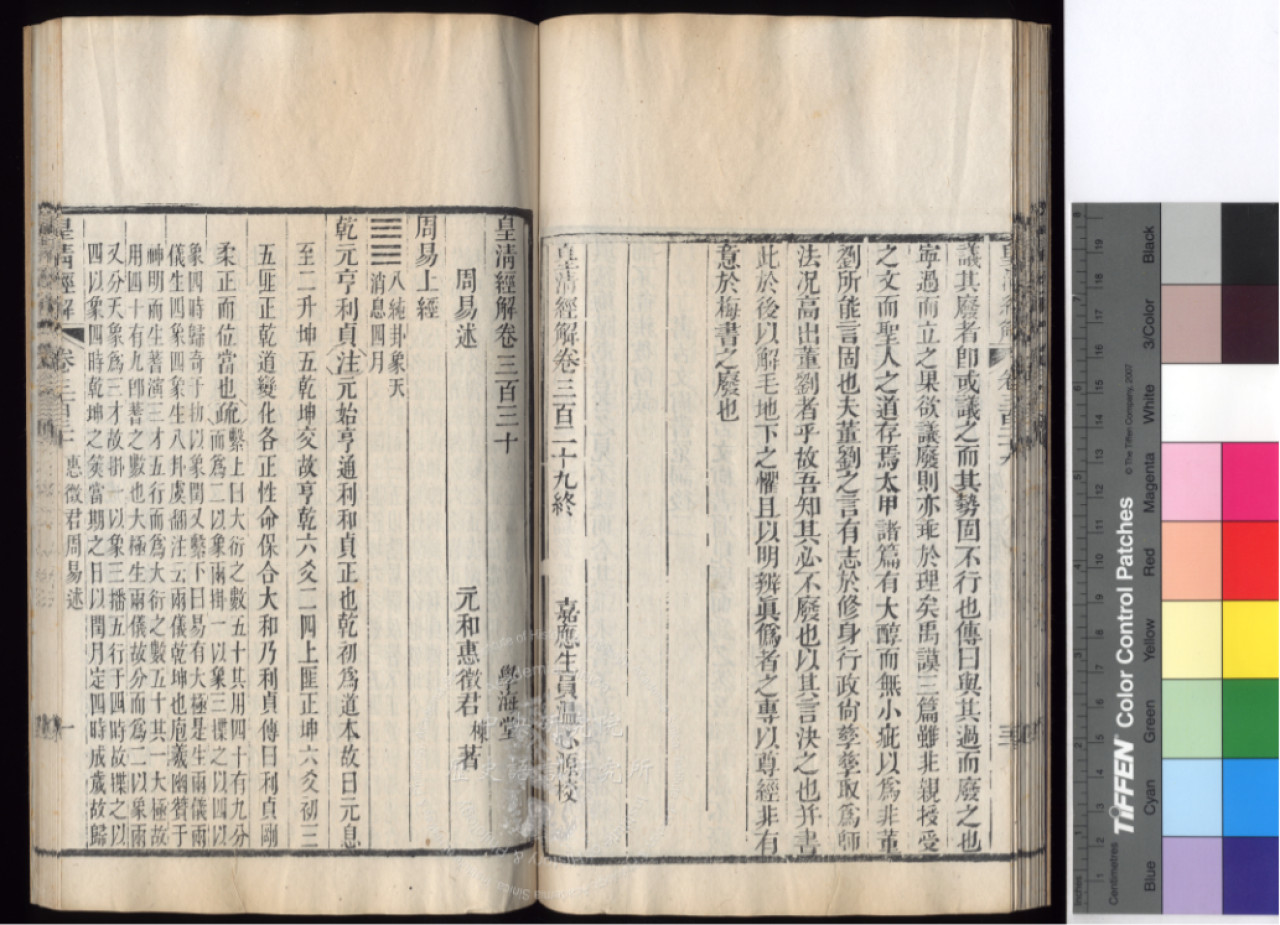 議其廢者卽或議之而其勢固不行也傳曰與其過而廢之也
寧過而立之果欲議廢則亦乖於理矣禹謨三篇雖非親授受
之文而聖人之道存焉太甲諸篇有大醇而無小疵以為非董
劉所能言固也夫董劉之言有志於修身行政尙孳孳取為師
法况高出董劉者乎故吾知其必不廢也以其言決之也幷書
此於後以解毛地下之懼且以明辨眞僞者之專以尊經非有
意於梅書之廢也
皇清經解卷三百二十九終
嘉應生員溫心源校
皇清經解卷三百三十
學海堂
周易述
元和惠徵君棟著
周易上經
八純卦象天
消息四月
乾元亨利貞注元始亨通利和貞正也乾初爲道本故曰元息
至二升坤五乾坤交故亨乾六爻二四上匪正坤六爻初三
五匪正乾道變化各正性命保合大和乃利貞傳曰利貞剛
柔正而位當也疏
繫上曰大衍之數五十其用四十有九分
而爲二以象兩掛一以象三揲之以四以
象四時歸奇于扐以象閏又繫下曰易有大極是生兩儀兩
儀生四象四象生八卦虞翻注云兩儀乾坤也庖羲幽贊于
神明而生蓍演三才五行而爲大衍之數五十其一大極故
用四十有九卽蓍之數也大極生兩儀故分而爲二以象兩
又分天象爲三才故掛一以象三播五行于四時故揲之以
四以象四時乾坤之筴當期之日以閏月定四時成歲故歸
皇清經解
卷三百三十
惠徵君周易述
一
Black
3/Color
White
Magenta
Red
Yellow
Green
Cyan
Blue
TIFFEN Color Control Patches
© The Tiffen Company, 2007
Centimetres
Inches